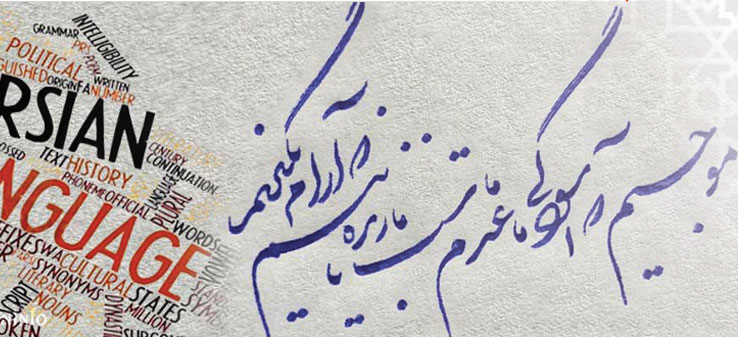 موجیم که آسودگی ما عدم ماست
ما زنده به آنیم که آرام نگیریم
GRAMMAR
INTELLIGIBILITY
POLITICAL
WRITTEN
ORIGIN
NUMBER
RSIAN
TEXT HISTORY
CENTURY
CONTINUATION
PHONEME OFFICIAL
PLURAL
NGUAGE
WORDS
CULTURAL
SYNONYMS
STATES
LITERARY
NOUNS
MILLION
SCRIPT
OKEN